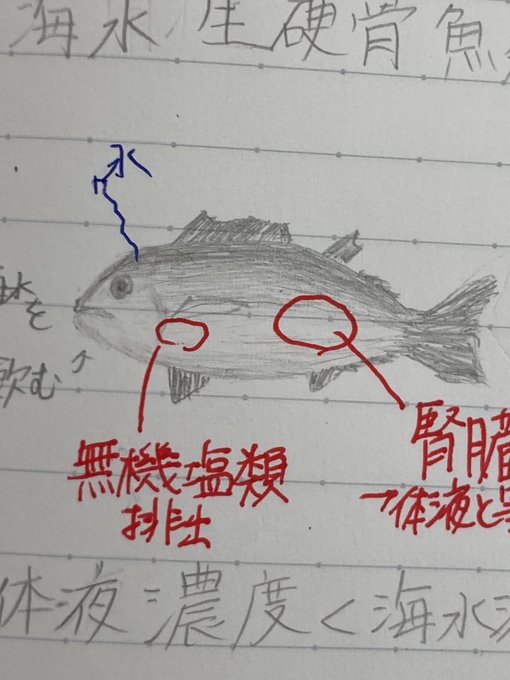 海水生硬骨魚
水
海水を
飲む
無機塩類
排出
腎臓
→体液と等
体液濃度<海水濃